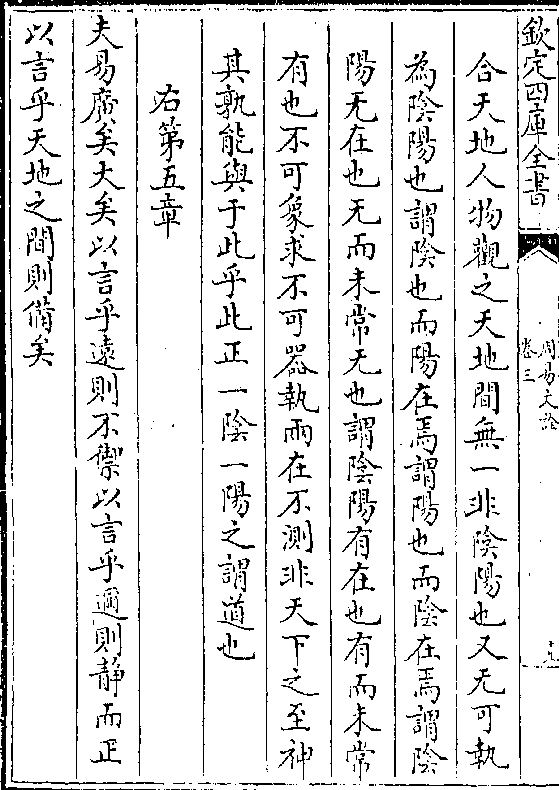 欽定四庫全書
周易文詮
卷三
十九
合天地人物觀之天地間無一非陰陽也又无可執
為陰陽也謂陰也而陽在焉謂陽也而陰在焉謂陰
陽无在也无而未常无也謂陰陽有在也有而未常
有也不可象求不可器執兩在不測非天下之至神
其孰能與于此乎此正一陰一陽之謂道也
右第五章
夫易廣矣大矣以言乎遠則不禦以言乎邇則靜而正
以言乎天地之間則備矣